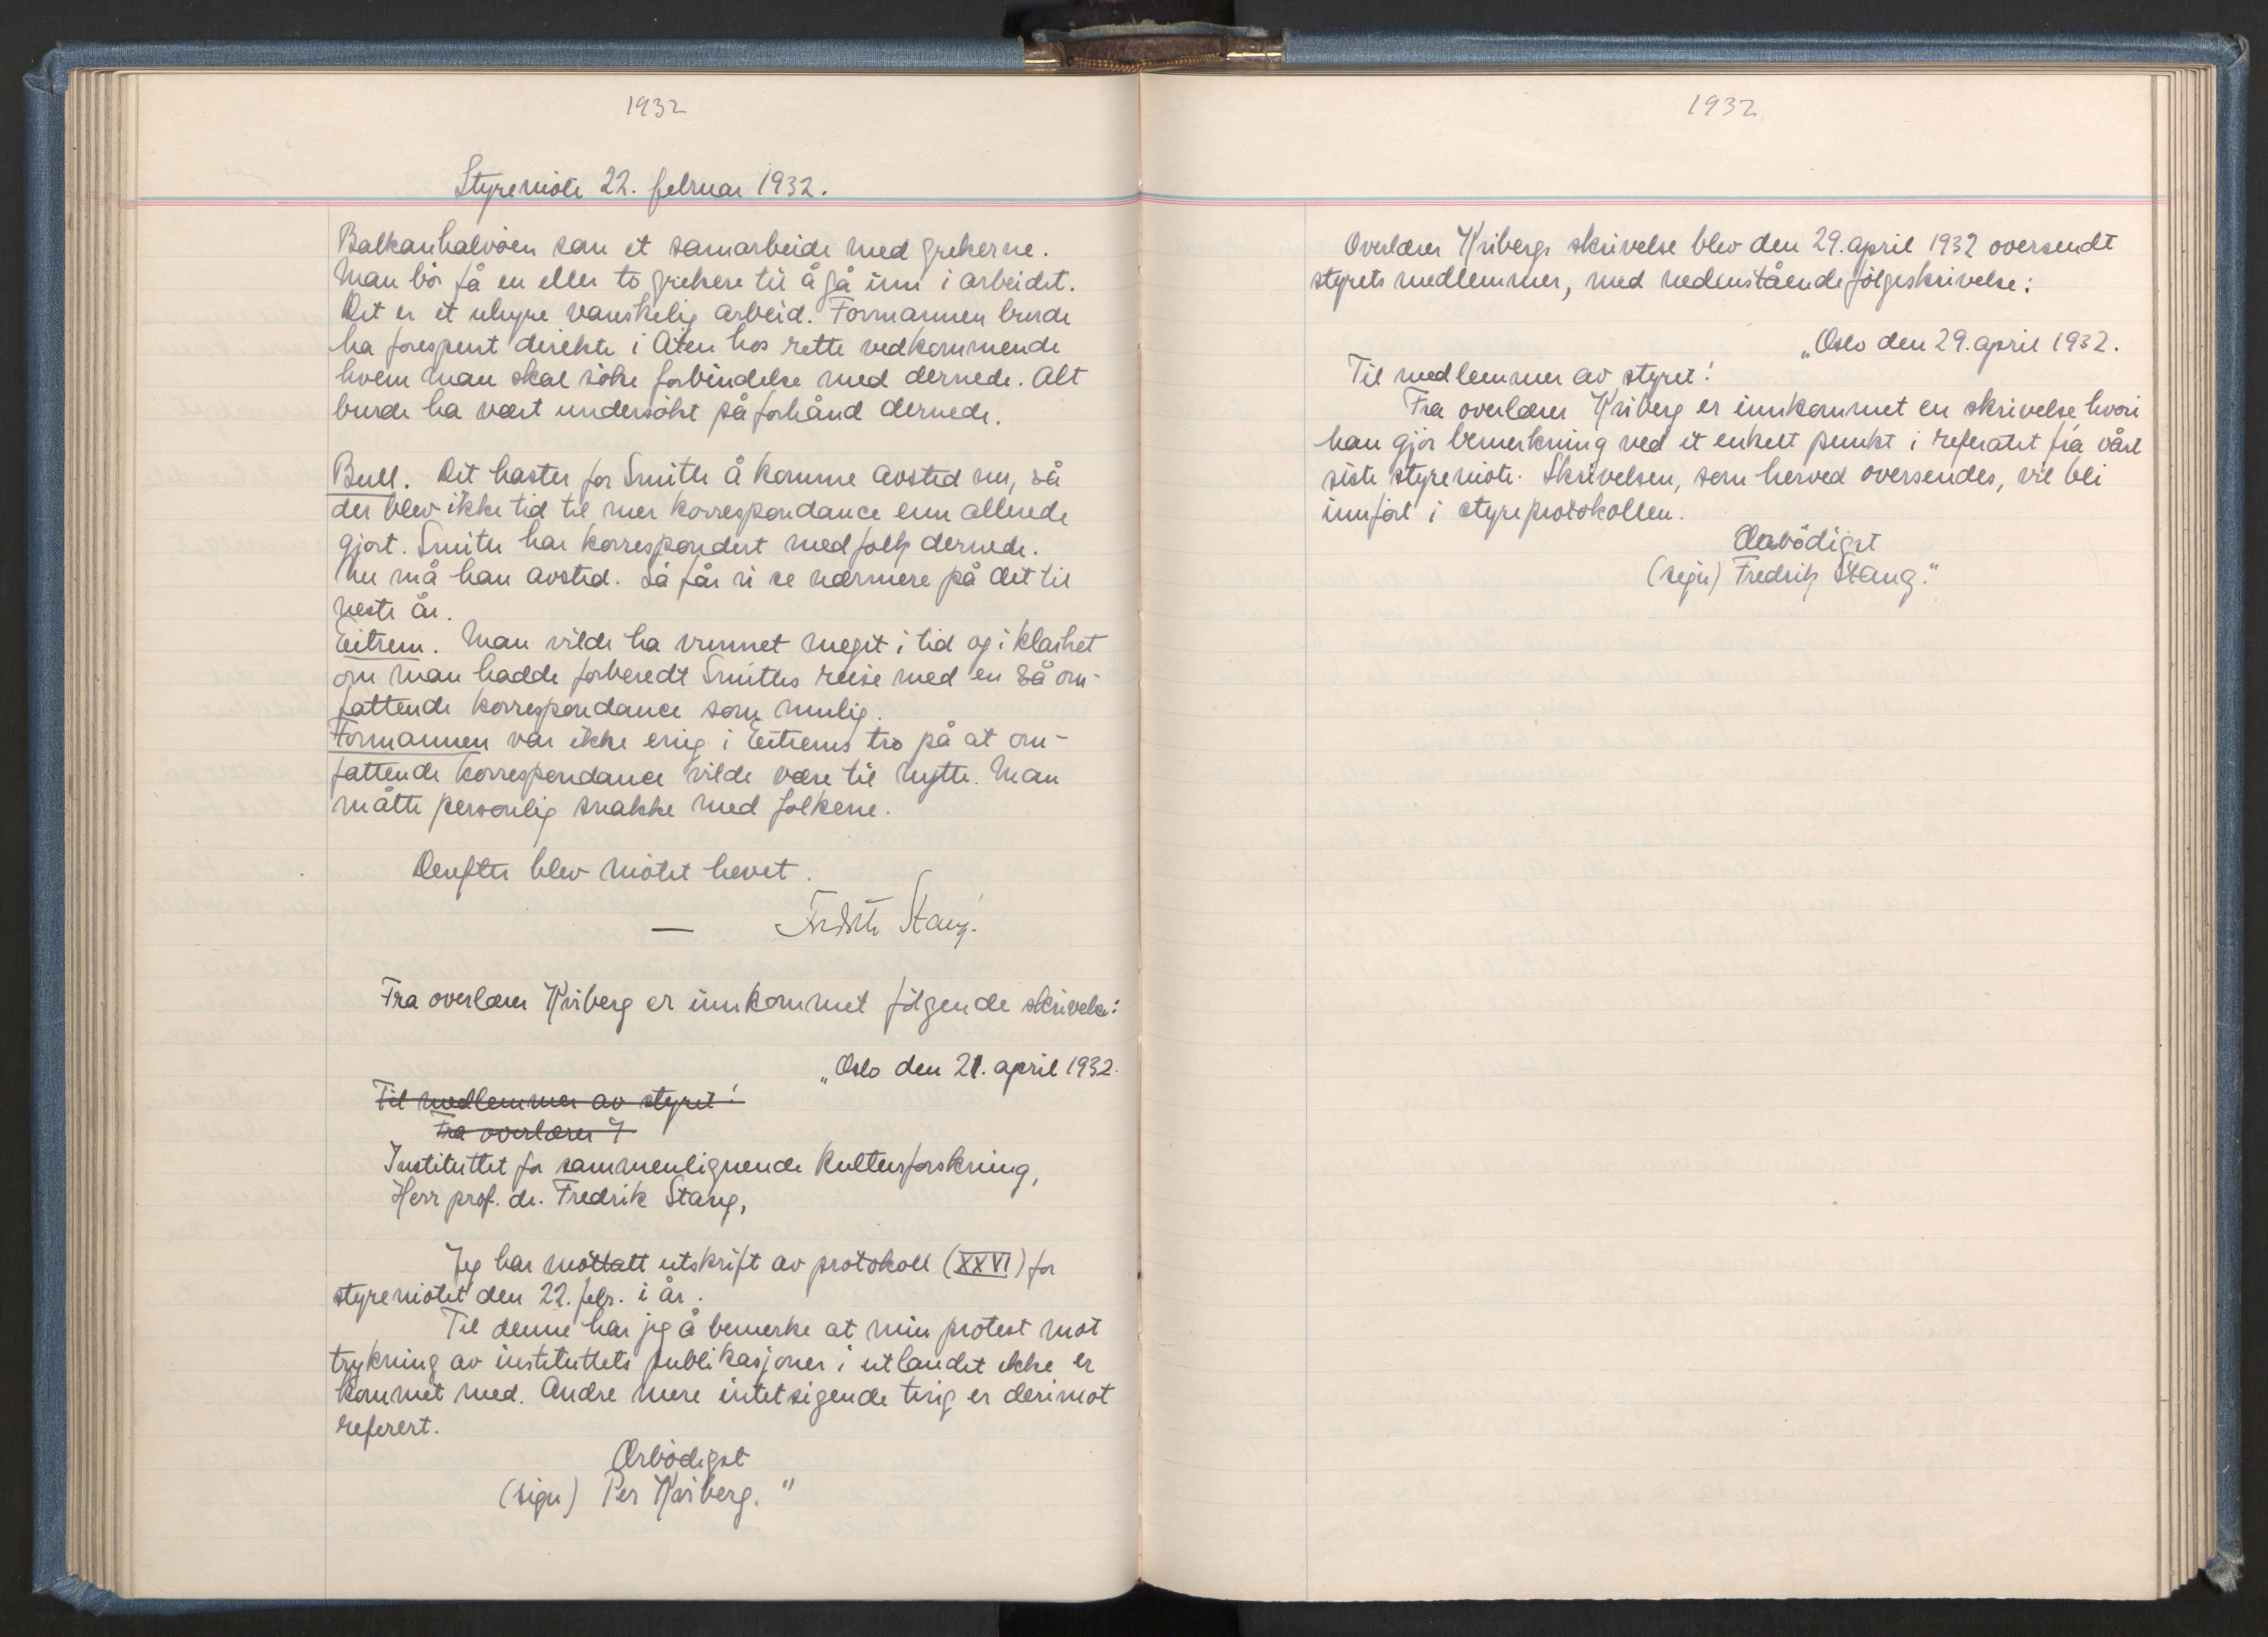 1932
Styremöte 22. februar 1932.
Balkanhalvöen som et samarbeide med grekerne.
Man bör få en eller to grekere til å gå inn i arbeidet.
Det er et uhyre vanskelig arbeid. Formannen burde
ha forespurt direkte i Aten hos rette vedkommende
hvem man skal söke forbindelse med dernede. Alt
burde ha vært undersökt på forhånd dernede.
Bull. Det haster for Smith å komme avsted nu, så
der blev ikke tid til mer korrespondance enn allerede
gjort. Smith har korrespondert med folk dernede.
Nu må han avsted. Så får vi se nærmere på det til
neste år.
Eitrem. Man vilde ha vunnet meget i tid og i klarhet
om man hadde forberedt Smiths reise med en så om-
fattende korrespondance som mulig.
Formannen var ikke enig i Eitrems tro på at om-
fattende korrespondance vilde være til nytte. Man
måtte personlig snakke med folkene.
Derefter blev mötet hevet.
— Fredrik Stang.
Fra overlærer Kviberg er innkommet fölgende skrivelse:
„Oslo den 21. april 1932.
Til medlemmer av styret!
Fra overlærer
Instituttet for sammenlignende kulturforskning,
Herr prof. dr. Fredrik Stang,
Jeg har mottatt utskrift av protokoll (XXVI) for
styremötet den 22. febr. i år.
Til denne har jeg å bemerke at min protest mot
trykning av instituttets publikasjoner i utlandet ikke er
kommet med. Andre mere intetsigende ting er derimot
referert.
Ærbödigst
(sign) Per Kviberg."
1932
Overlærer Kvibergs skrivelse blev den 29. april 1932 oversendt
styrets medlemmer, med nedenstående fölgeskrivelse:
„Oslo den 29. april 1932.
Til medlemmer av styret!
Fra overlærer Kviberg er innkommet en skrivelse hvori
han gjör bemerkning ved et enkelt punkt i referatet fra vårt
siste styremöte. Skrivelsen, som herved oversendes, vil bli
innfört i styreprotokollen.
Ærbödigst
(sign) Fredrik Stang."